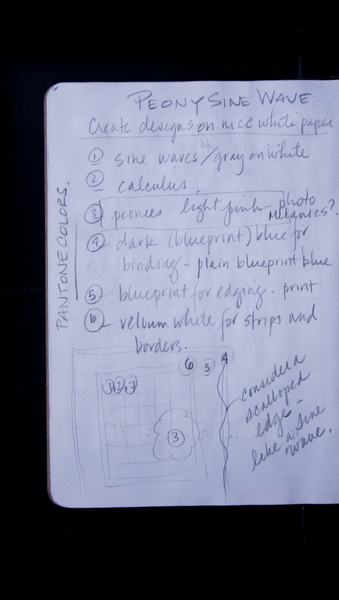 PEONY SINE WAVE
Create designs on nice white paper
① sine waves / gray on white
② calculus.
③ peonies light pink - photo mechanics?
④ dark (blueprint) blue for
binding - plain blueprint blue
⑤ blueprint for edging. print
⑥ vellum white for strips and
borders.
PANTONE COLORS.
⑥ ⑤ 4
①②⑦
③
consider a
scalloped
edge -
like a sine
wave.